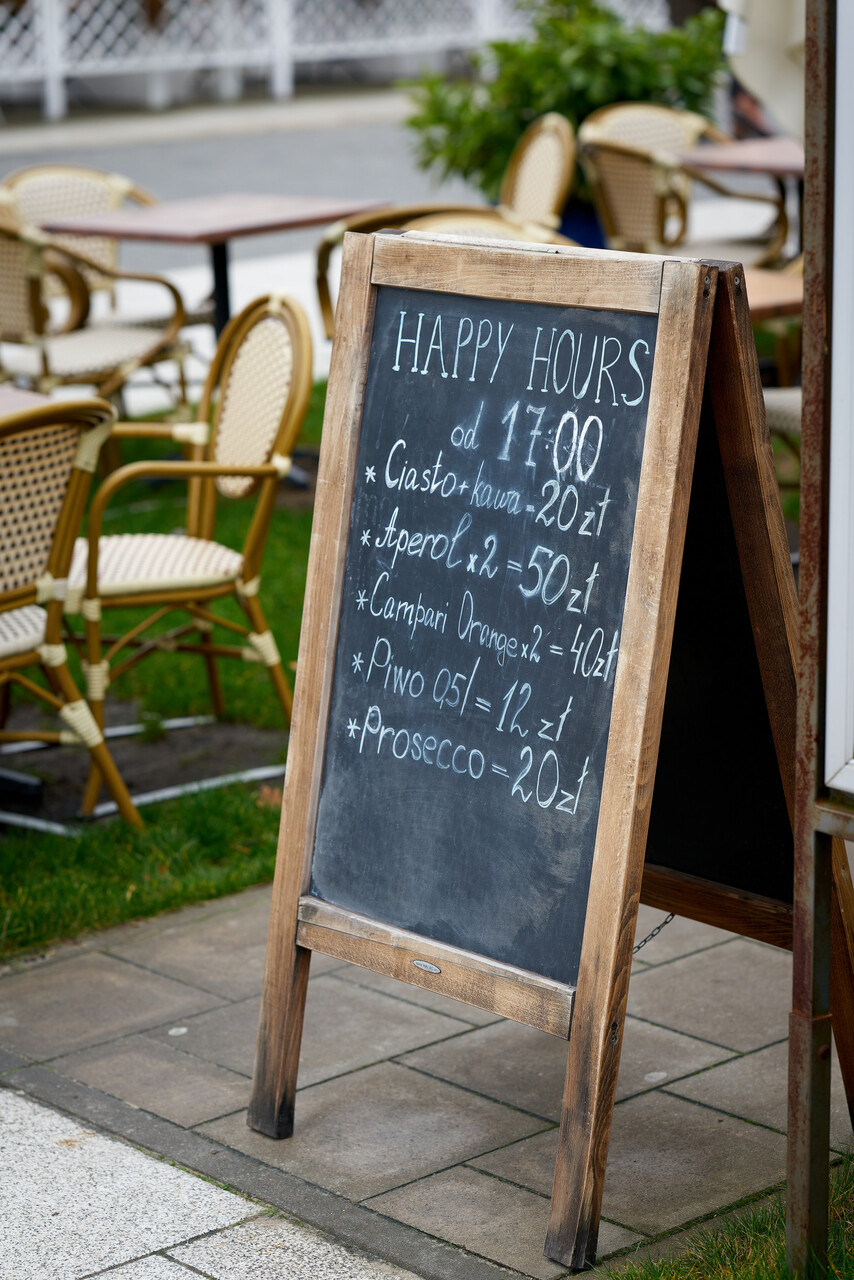 HAPPY HOURS
od 17:00
* Ciasto + kawa - 20 zł
* Aperol x 2 = 50 zł
* Campari Orange x 2 = 40 zł
* Piwo 0,5l = 12 zł
* Prosecco = 20 zł